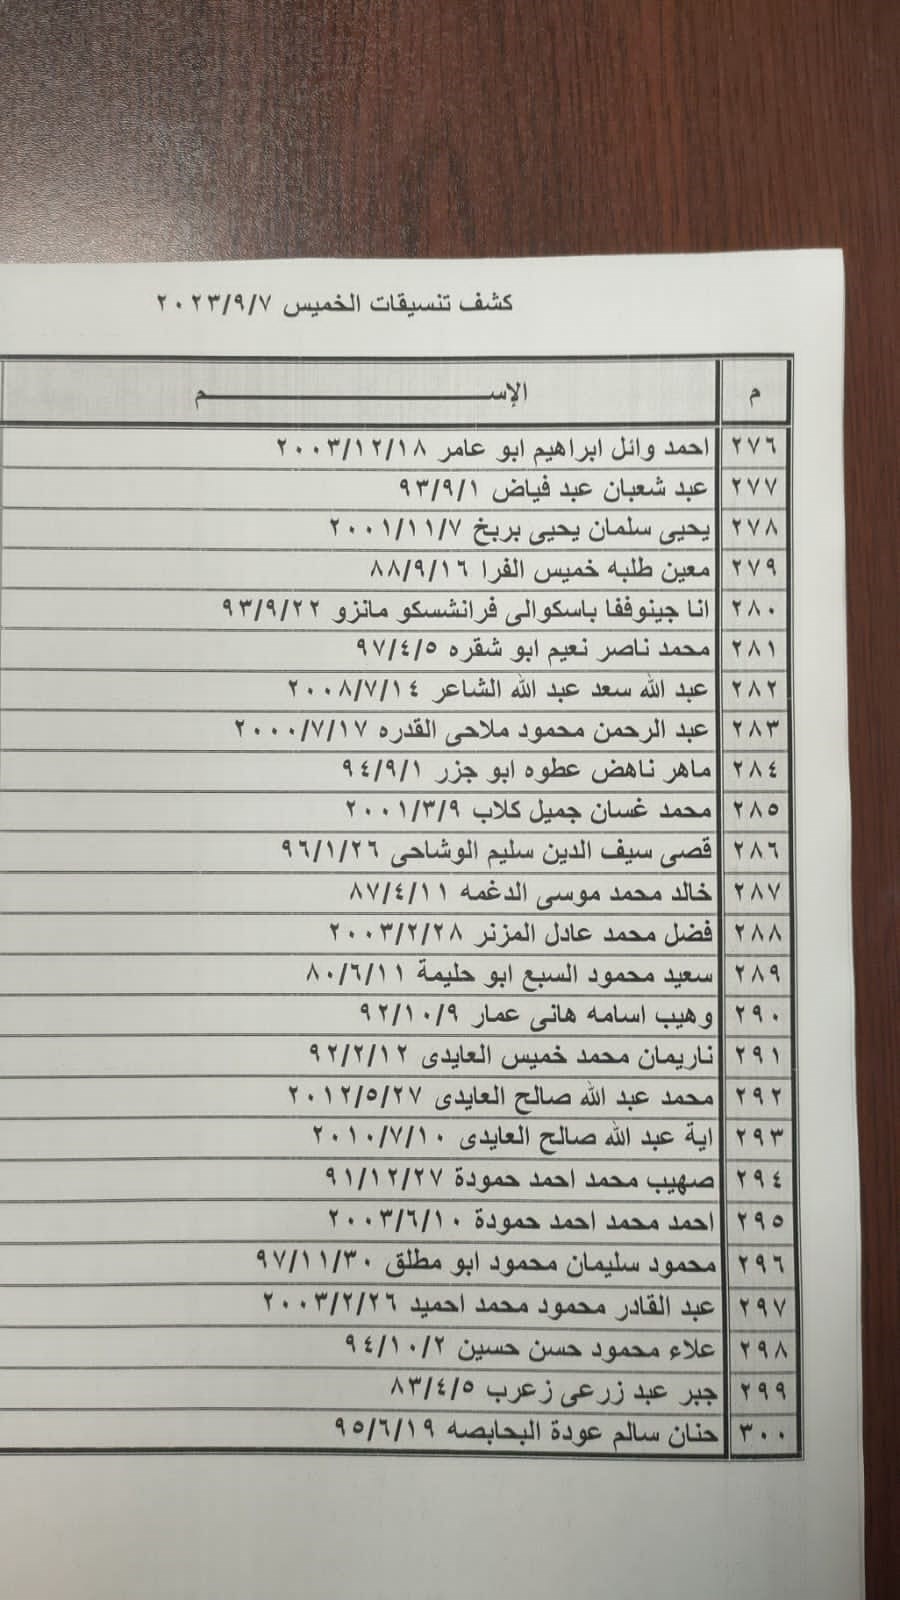 كشف تنسيقات الخميس ٢٠٢٣/٩/٧
م الإســـــــــــــــــــم
٢٧٦ احمد وائل ابراهيم ابو عامر ٢٠٠٣/١٢/١٨
٢٧٧ عبد شعبان عبد فياض ٩٣/٩/١
٢٧٨ يحيى سلمان يحيى بربخ ٢٠٠١/١١/٧
٢٧٩ معين طلبه خميس الفرا ٨٨/٩/١٦
٢٨٠ انا جينوففا باسكوالى فرانشسكو مانزو ٩٣/٩/٢٢
٢٨١ محمد ناصر نعيم ابو شقره ٩٧/٤/٥
٢٨٢ عبد الله سعد عبد الله الشاعر ٢٠٠٨/٧/١٤
٢٨٣ عبد الرحمن محمود ملاحى القدره ٢٠٠٠/٧/١٧
٢٨٤ ماهر ناهض عطوه ابو جزر ٩٤/٩/١
٢٨٥ محمد غسان جميل كلاب ٢٠٠١/٣/٩
٢٨٦ قصى سيف الدين سليم الوشاحى ٩٦/١/٢٦
٢٨٧ خالد محمد موسى الدغمه ٨٧/٤/١١
٢٨٨ فضل محمد عادل المزنر ٢٠٠٣/٢/٢٨
٢٨٩ سعيد محمود السبع ابو حليمة ٨٠/٦/١١
٢٩٠ وهيب اسامه هانى عمار ٩٢/١٠/٩
٢٩١ ناريمان محمد خميس العايدى ٩٢/٢/١٢
٢٩٢ محمد عبد الله صالح العايدى ٢٠١٢/٥/٢٧
٢٩٣ اية عبد الله صالح العايدى ٢٠١٠/٧/١٠
٢٩٤ صهيب محمد احمد حمودة ٩١/١٢/٢٧
٢٩٥ احمد محمد احمد حمودة ٢٠٠٣/٦/١٠
٢٩٦ محمود سليمان محمود ابو مطلق ٩٧/١١/٣٠
٢٩٧ عبد القادر محمود محمد احميد ٢٠٠٣/٢/٢٦
٢٩٨ علاء محمود حسن حسين ٩٤/١٠/٢
٢٩٩ جبر عبد زرعى زعرب ٨٣/٤/٥
٣٠٠ حنان سالم عودة البحابصه ٩٥/٦/١٩